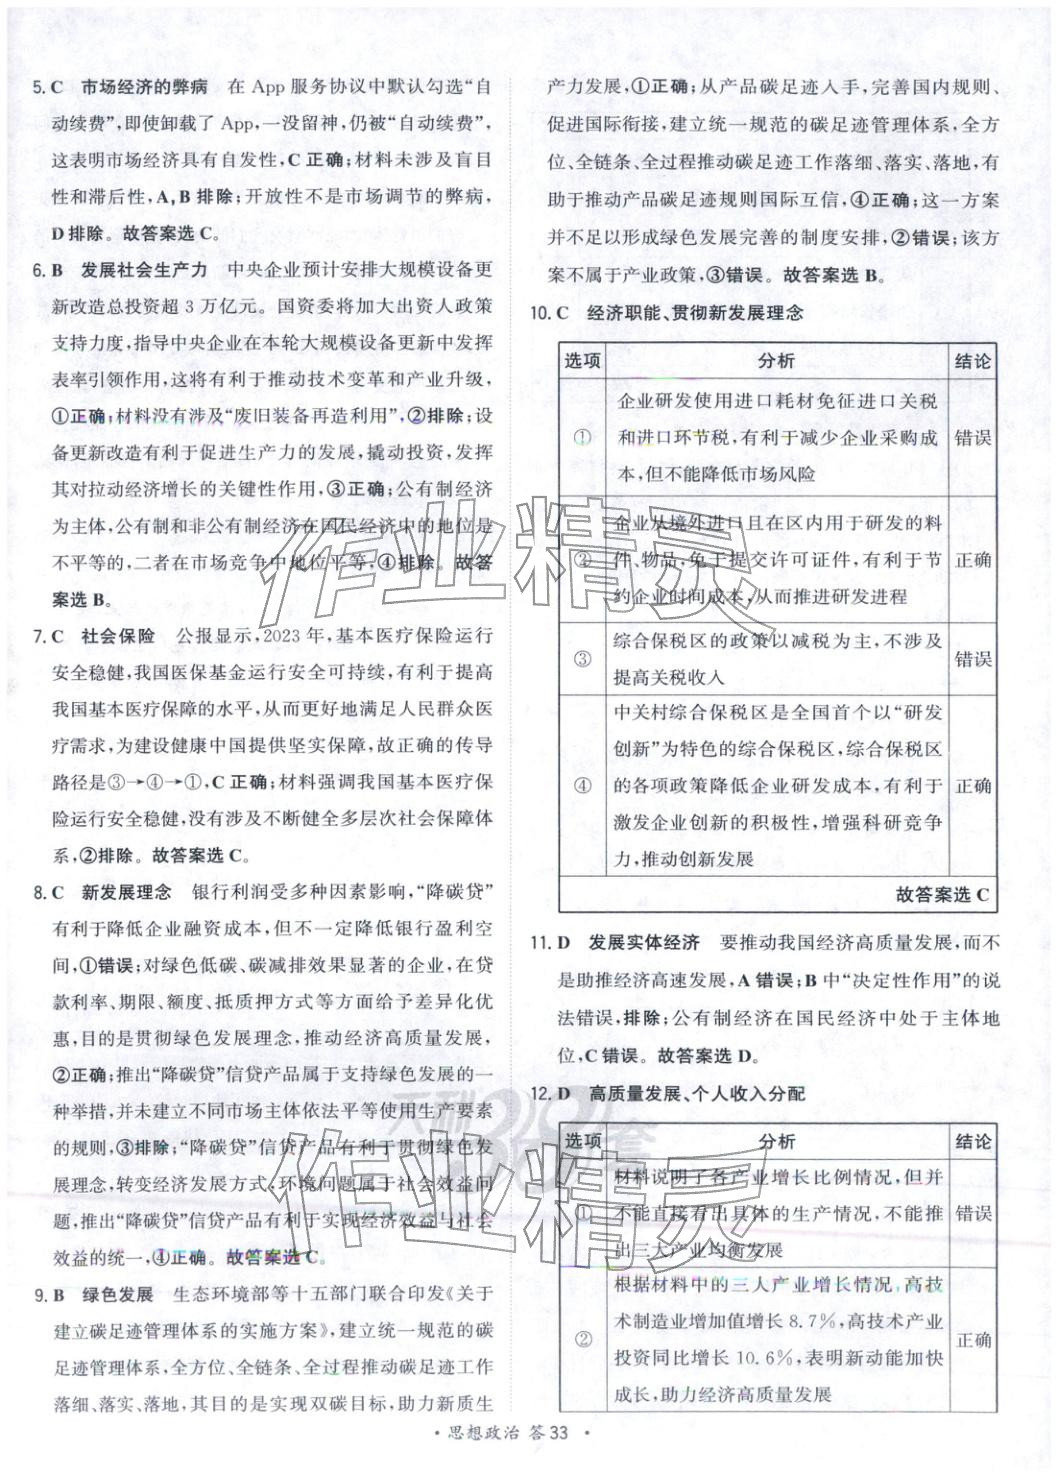 5. C 市场经济的弊病 在 App 服务协议中默认勾选“自
动续费”,即使卸载了 App,一没留神,仍被“自动续费”,
这表明市场经济具有自发性,C 正确;材料未涉及盲目
性和滞后性,A,B 排除;开放性不是市场调节的弊病,
D 排除。故答案选 C。
6. B 发展社会生产力 中央企业预计安排大规模设备更
新改造总投资超 3 万亿元。国资委将加大出资人政策
支持力度,指导中央企业在本轮大规模设备更新中发挥
表率引领作用,这将有利于推动技术变革和产业升级,
①正确;材料没有涉及“废旧装备再造利用”,②排除;设
备更新改造有利于促进生产力的发展,撬动投资,发挥
其对拉动经济增长的关键性作用,③正确;公有制经济
为主体,公有制和非公有制经济在国民经济中的地位是
不平等的,二者在市场竞争中地位平等,④排除。故答
案选 B。
7. C 社会保险 公报显示,2023 年,基本医疗保险运行
安全稳健,我国医保基金运行安全可持续,有利于提高
我国基本医疗保障的水平,从而更好地满足人民群众医
疗需求,为建设健康中国提供坚实保障,故正确的传导
路径是③→④→①,C 正确;材料强调我国基本医疗保
险运行安全稳健,没有涉及不断健全多层次社会保障体
系,②排除。故答案选 C。
8. C 新发展理念 银行利润受多种因素影响,“降碳贷”
有利于降低企业融资成本,但不一定降低银行盈利空
间,①错误;对绿色低碳、碳减排效果显著的企业,在贷
款利率、期限、额度、抵质押方式等方面给予差异化优
惠,目的是贯彻绿色发展理念,推动经济高质量发展,
②正确;推出“降碳贷”信贷产品属于支持绿色发展的一
种举措,并未建立不同市场主体依法平等使用生产要素
的规则,③排除;“降碳贷”信贷产品有利于贯彻绿色发
展理念,转变经济发展方式,环境问题属于社会效益问
题,推出“降碳贷”信贷产品有利于实现经济效益与社会
效益的统一,④正确。故答案选 C。
9. B 绿色发展 生态环境部等十五部门联合印发《关于
建立碳足迹管理体系的实施方案》,建立统一规范的碳
足迹管理体系,全方位、全链条、全过程推动碳足迹工作
落细、落实、落地,其目的是实现双碳目标,助力新质生
产力发展,①正确;从产品碳足迹入手,完善国内规则、
促进国际衔接,建立统一规范的碳足迹管理体系,全方
位、全链条、全过程推动碳足迹工作落细、落实、落地,有
助于推动产品碳足迹规则国际互信,④正确;这一方案
并不足以形成绿色发展完善的制度安排,②错误;该方
案不属于产业政策,③错误。故答案选 B。
10. C 经济职能、贯彻新发展理念
选项 分析 结论
企业研发使用进口耗材免征进口关税
① 和进口环节税,有利于减少企业采购成 错误
本,但不能降低市场风险
企业从境外进口且在区内用于研发的料
② 件、物品,免于提交许可证件,有利于节 正确
约企业时间成本,从而推进研发进程
③ 综合保税区的政策以减税为主,不涉及 错误
提高关税收入
中关村综合保税区是全国首个以“研发
创新”为特色的综合保税区,综合保税区
④ 的各项政策降低企业研发成本,有利于 正确
激发企业创新的积极性,增强科研竞争
力,推动创新发展
故答案选 C
11. D 发展实体经济 要推动我国经济高质量发展,而不
是助推经济高速发展,A 错误;B 中“决定性作用”的说
法错误,排除;公有制经济在国民经济中处于主体地
位,C 错误。故答案选 D。
12. D 高质量发展、个人收入分配
选项 分析 结论
材料说明了各产业增长比例情况,但并
① 不能直接看出具体的生产情况,不能推 错误
出三大产业均衡发展
根据材料中的三大产业增长情况,高技
② 术制造业增加值增长 8.7%,高技术产业 正确
投资同比增长 10.6%,表明新动能加快
成长,助力经济高质量发展
· 思想政治 答 33 ·
作业精灵
天利38套
作业精灵